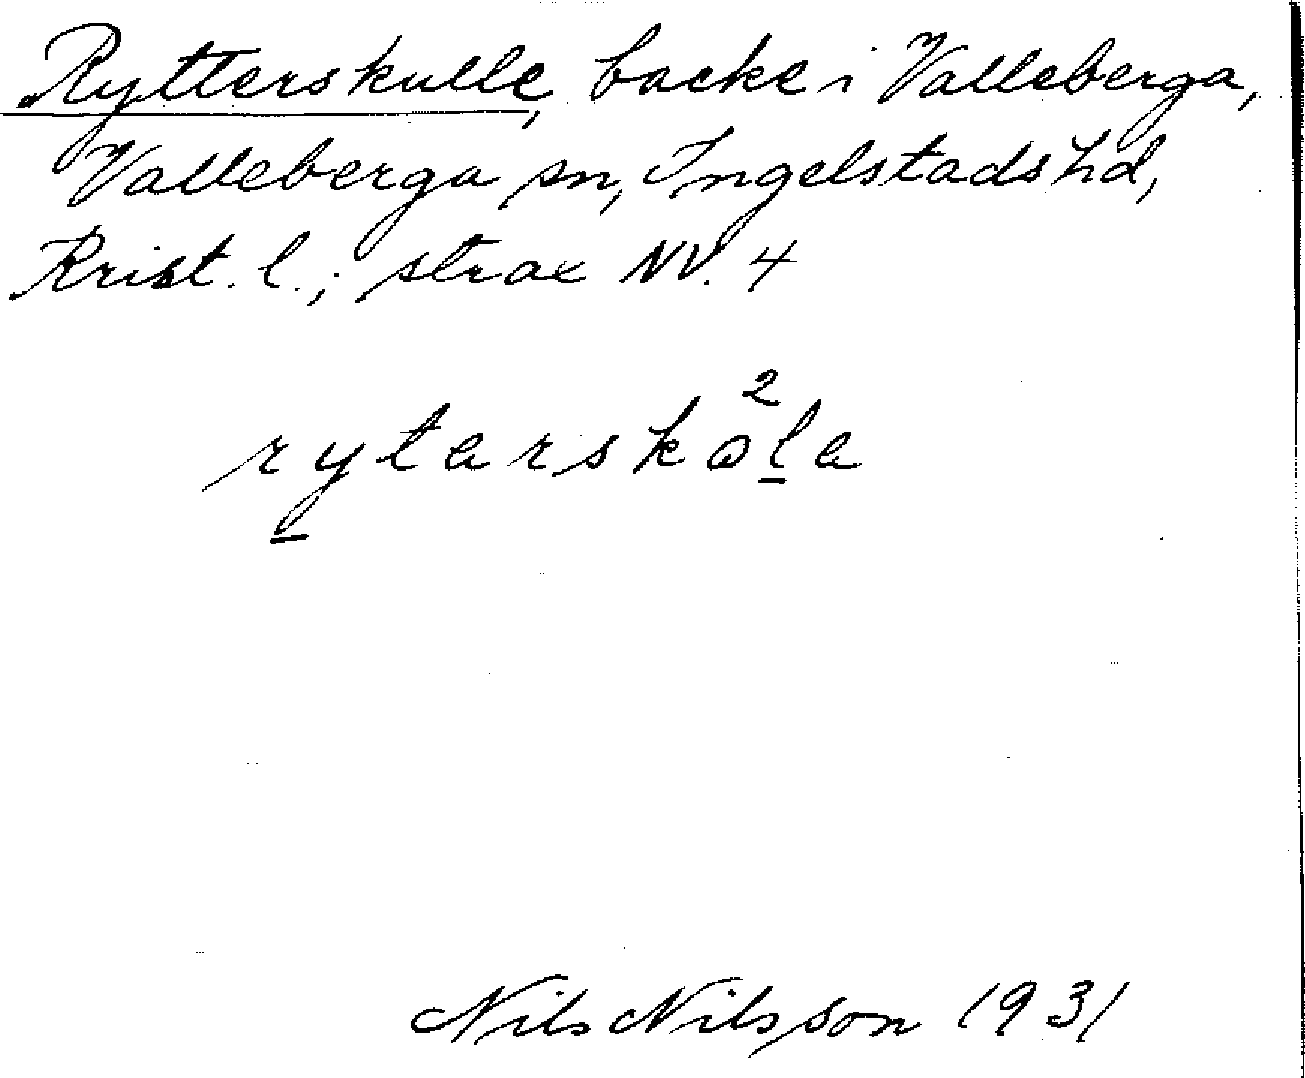 Rytterskulle, backe i Valleberga,
Valleberga sn, Ingelstads hd,
Krist. l.; strax NV. 4
rytarskola
Nils Nilsson 1931